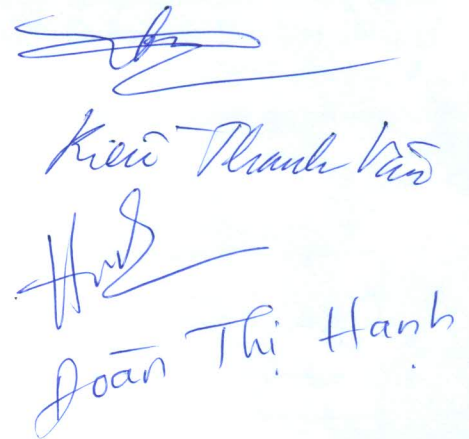 Kiều Thanh Vân
Đoàn Thị Hạnh